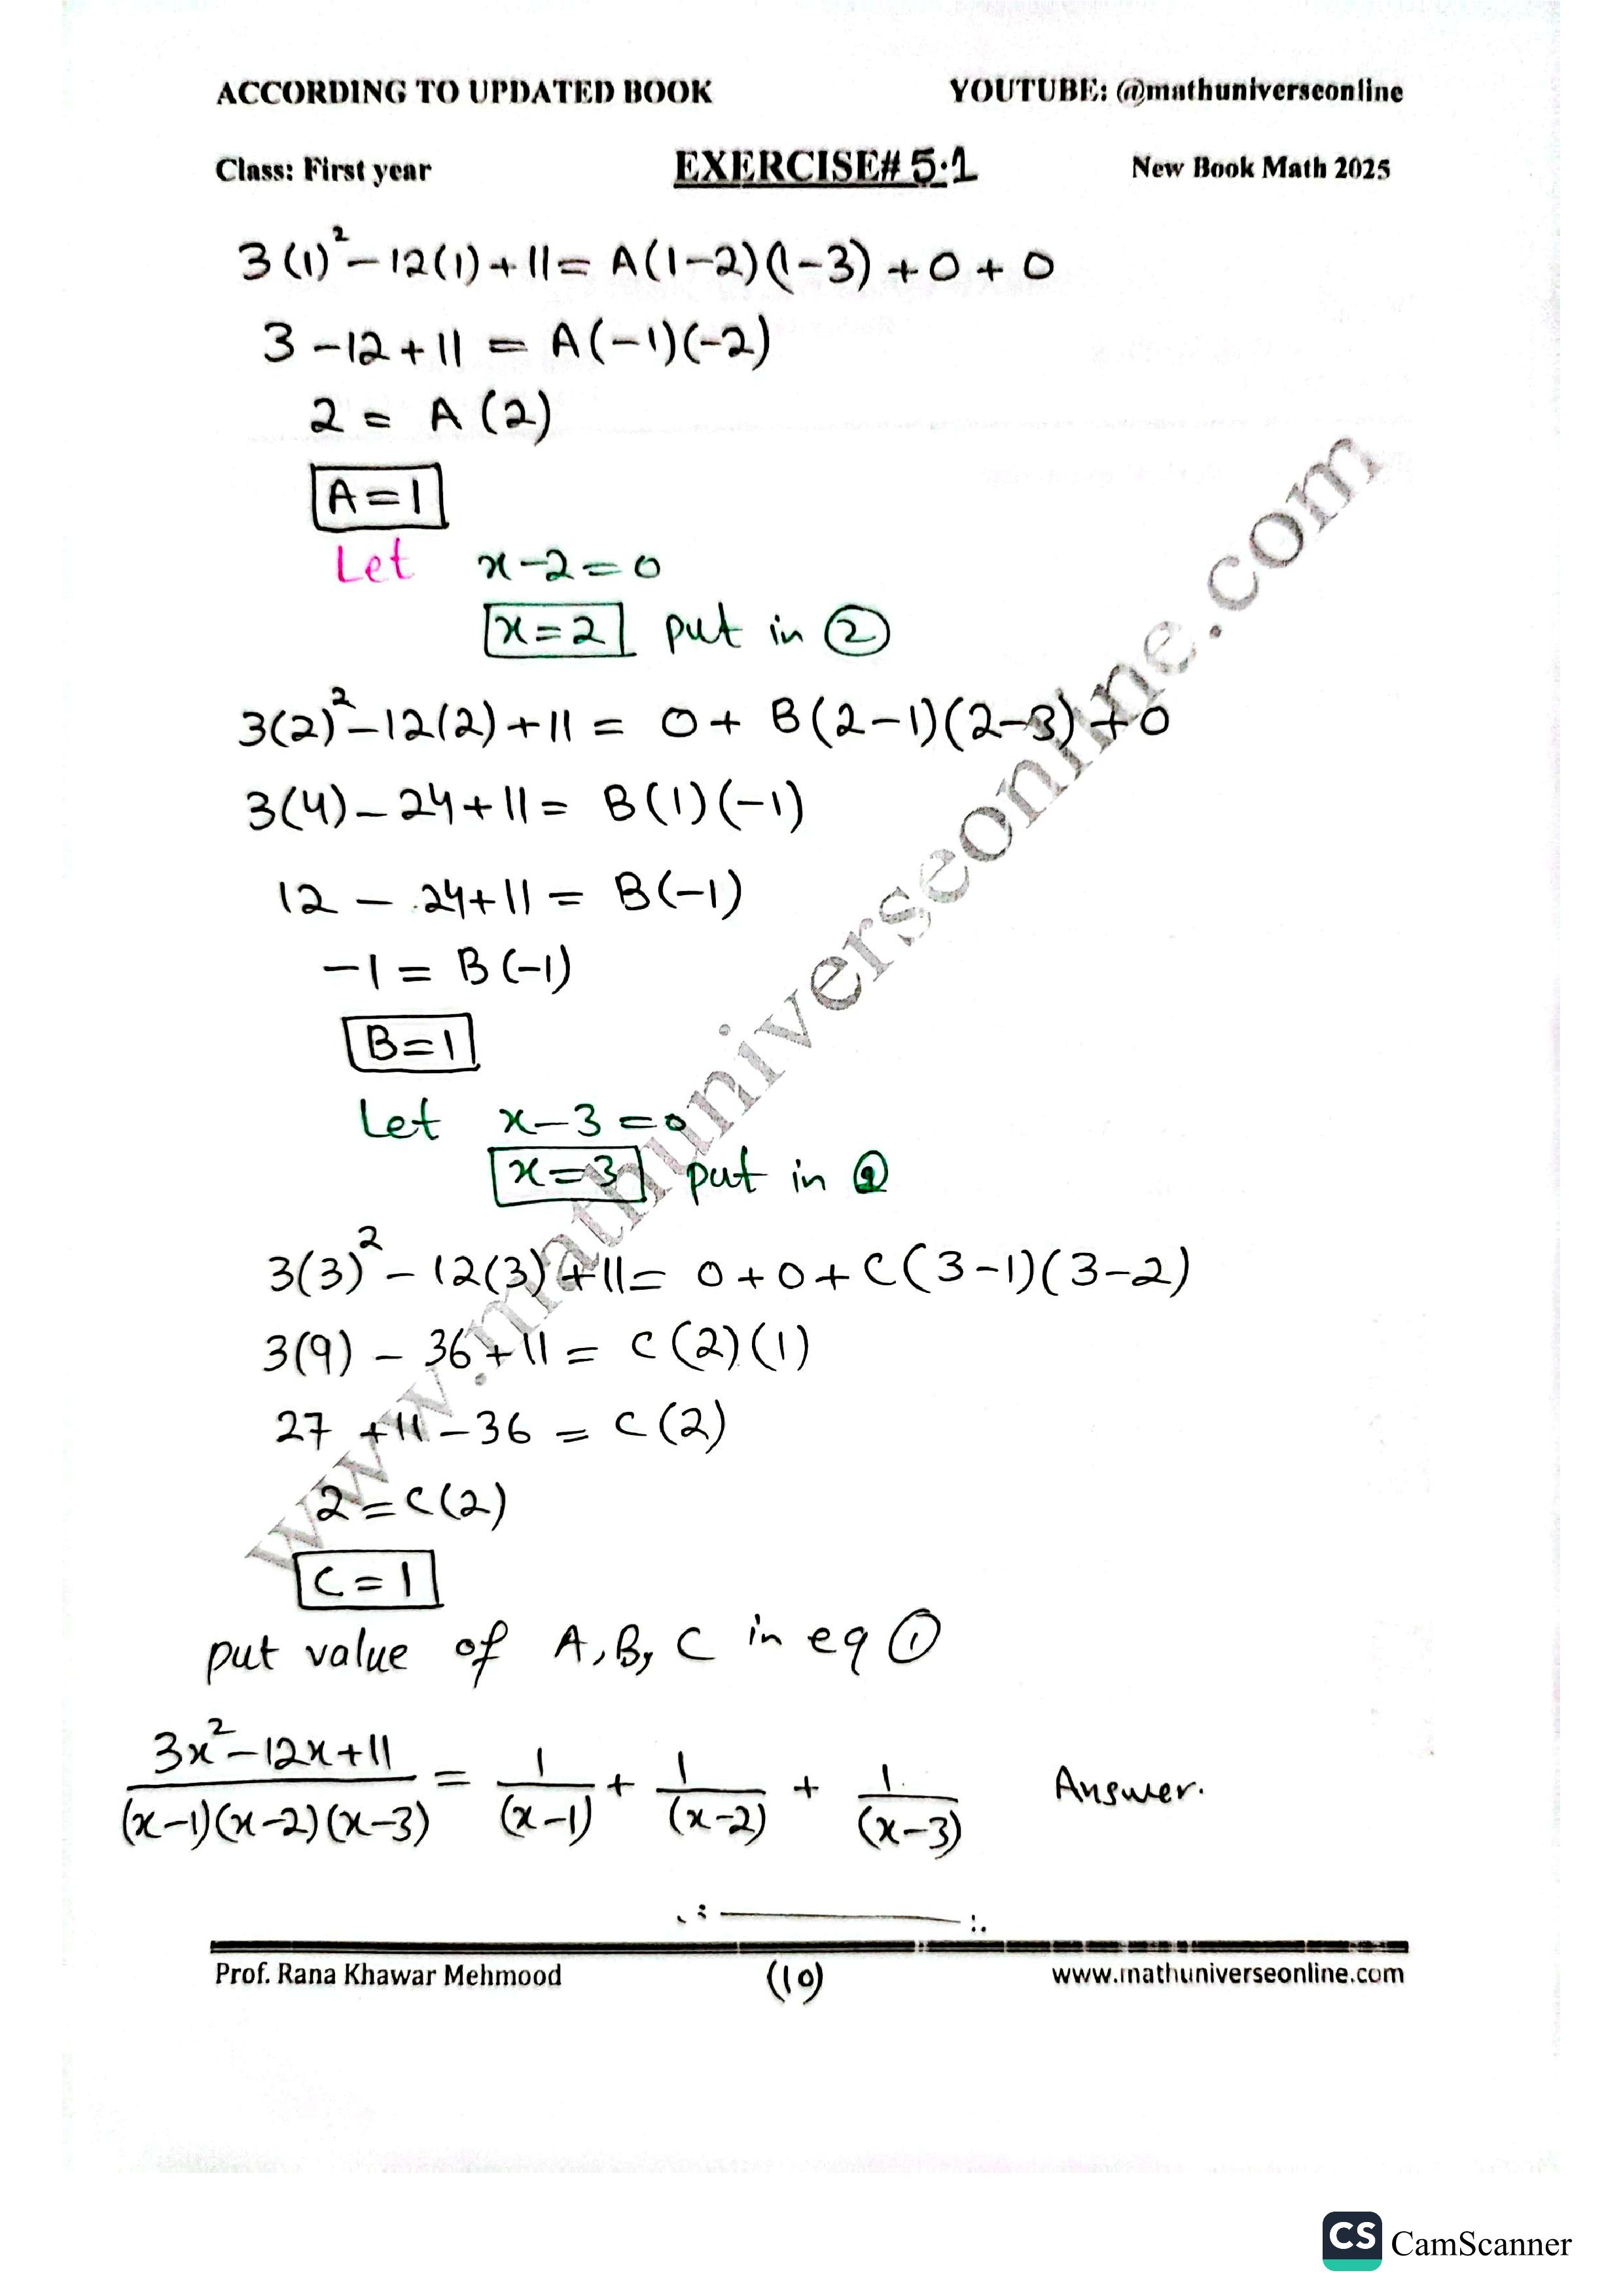 ACCORDING TO UPDATED BOOK YOUTUBE: @mathuniverseonline
Class: First year EXERCISE# 5.1 New Book Math 2025
3(1)² - 12(1) + 11 = A(1-2)(1-3) + 0 + 0
3 - 12 + 11 = A(-1)(-2)
2 = A(2)
A = 1
Let x - 2 = 0
x = 2 put in ②
3(2)² - 12(2) + 11 = 0 + B(2-1)(2-3) + 0
3(4) - 24 + 11 = B(1)(-1)
12 - 24 + 11 = B(-1)
-1 = B(-1)
B = 1
Let x - 3 = 0
x = 3 put in ②
3(3)² - 12(3) + 11 = 0 + 0 + C(3-1)(3-2)
3(9) - 36 + 11 = C(2)(1)
27 + 11 - 36 = C(2)
2 = C(2)
C = 1
put value of A, B, C in eq ①
3x² - 12x + 11 / (x-1)(x-2)(x-3) = 1/(x-1) + 1/(x-2) + 1/(x-3) Answer.
Prof. Rana Khawar Mehmood (10) www.mathuniverseonline.com
www.mathuniverseonline.com
CS CamScanner